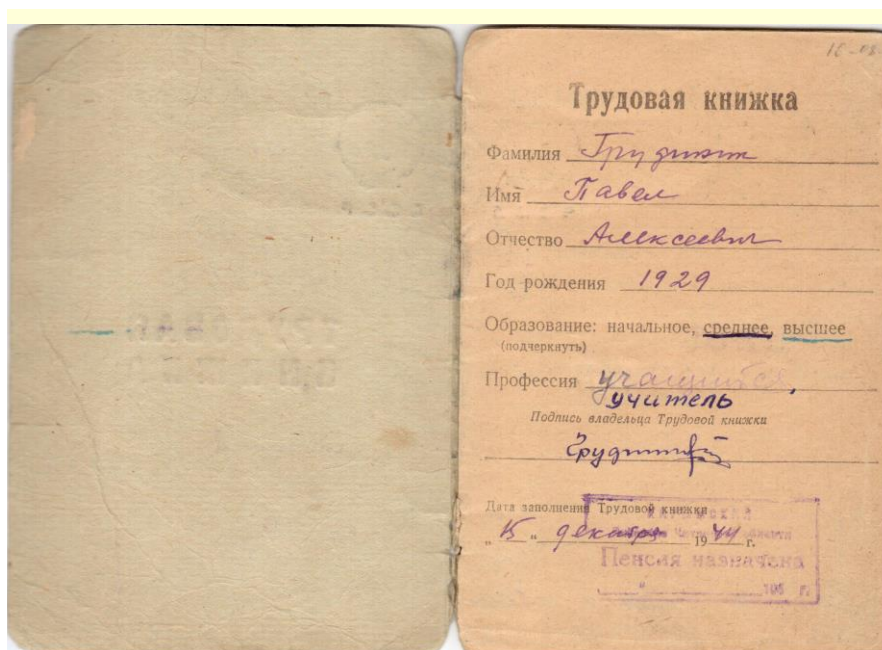 Трудовая книжка
Фамилия Грудинин
Имя Павел
Отчество Алексеевич
Год рождения 1929
Образование: начальное, среднее, высшее
(подчеркнуть)
Профессия учащийся,
учитель
Подпись владельца Трудовой книжки
Дата заполнения Трудовой книжки
"15" декабря 1944 г.
Пенсия назначена